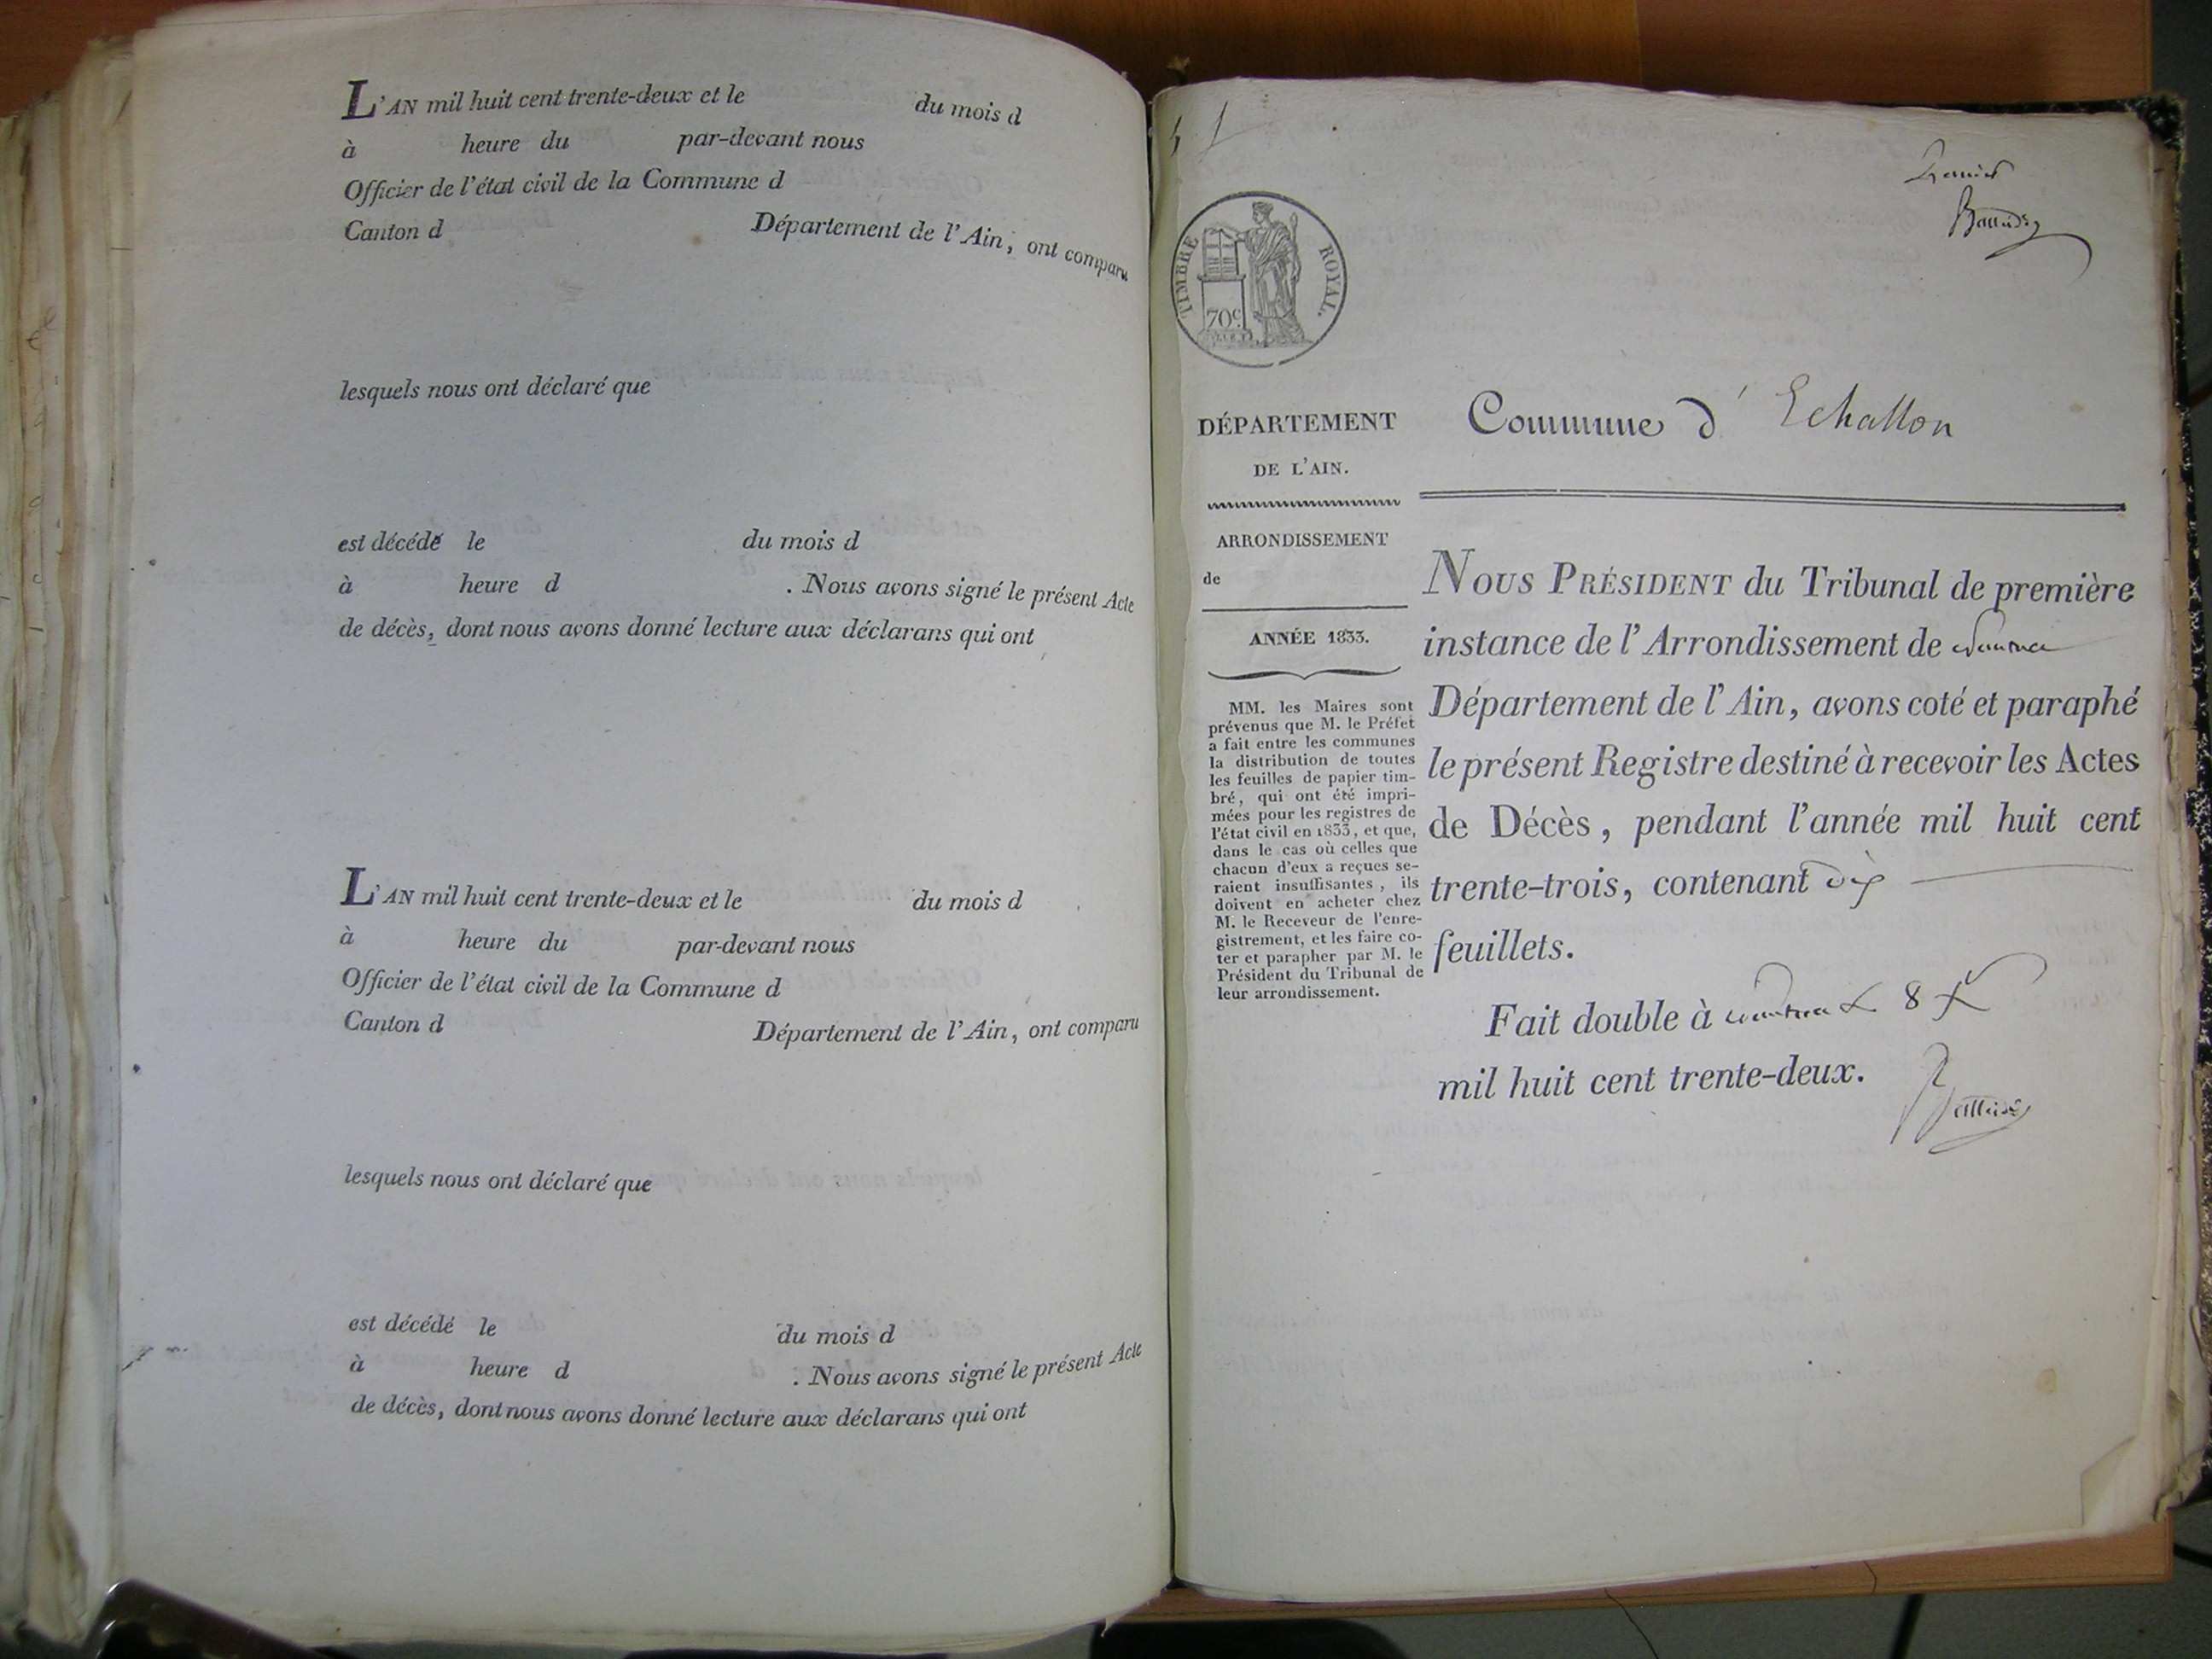 L'AN mil huit cent trente-deux et le du mois d
à heure du par-devant nous
Officier de l'état civil de la Commune d
Canton d Département de l'Ain, ont comparu
lesquels nous ont déclaré que
est décédé le du mois d
à heure d . Nous avons signé le présent Acte
de décès, dont nous avons donné lecture aux déclarans qui ont
L'AN mil huit cent trente-deux et le du mois d
à heure du par-devant nous
Officier de l'état civil de la Commune d
Canton d Département de l'Ain, ont comparu
lesquels nous ont déclaré que
est décédé le du mois d
à heure d . Nous avons signé le présent Acte
de décès, dont nous avons donné lecture aux déclarans qui ont
TIMBRE ROYAL.
70c
DÉPARTEMENT
DE L'AIN.
ARRONDISSEMENT
de
ANNÉE 1833.
MM. les Maires sont
prévenus que M. le Préfet
a fait entre les communes
la distribution de toutes
les feuilles de papier tim-
bré, qui ont été impri-
mées pour les registres de
l'état civil en 1833, et que,
dans le cas où celles que
chacun d'eux a reçues se-
raient insuffisantes, ils
doivent en acheter chez
M. le Receveur de l'enre-
gistrement, et les faire co-
ter et parapher par M. le
Président du Tribunal de
leur arrondissement.
Commune d' Echallon
NOUS PRÉSIDENT du Tribunal de première
instance de l'Arrondissement de Nantua
Département de l'Ain, avons coté et paraphé
le présent Registre destiné à recevoir les Actes
de Décès, pendant l'année mil huit cent
trente-trois, contenant dix
feuillets.
Fait double à Nantua 8
mil huit cent trente-deux.